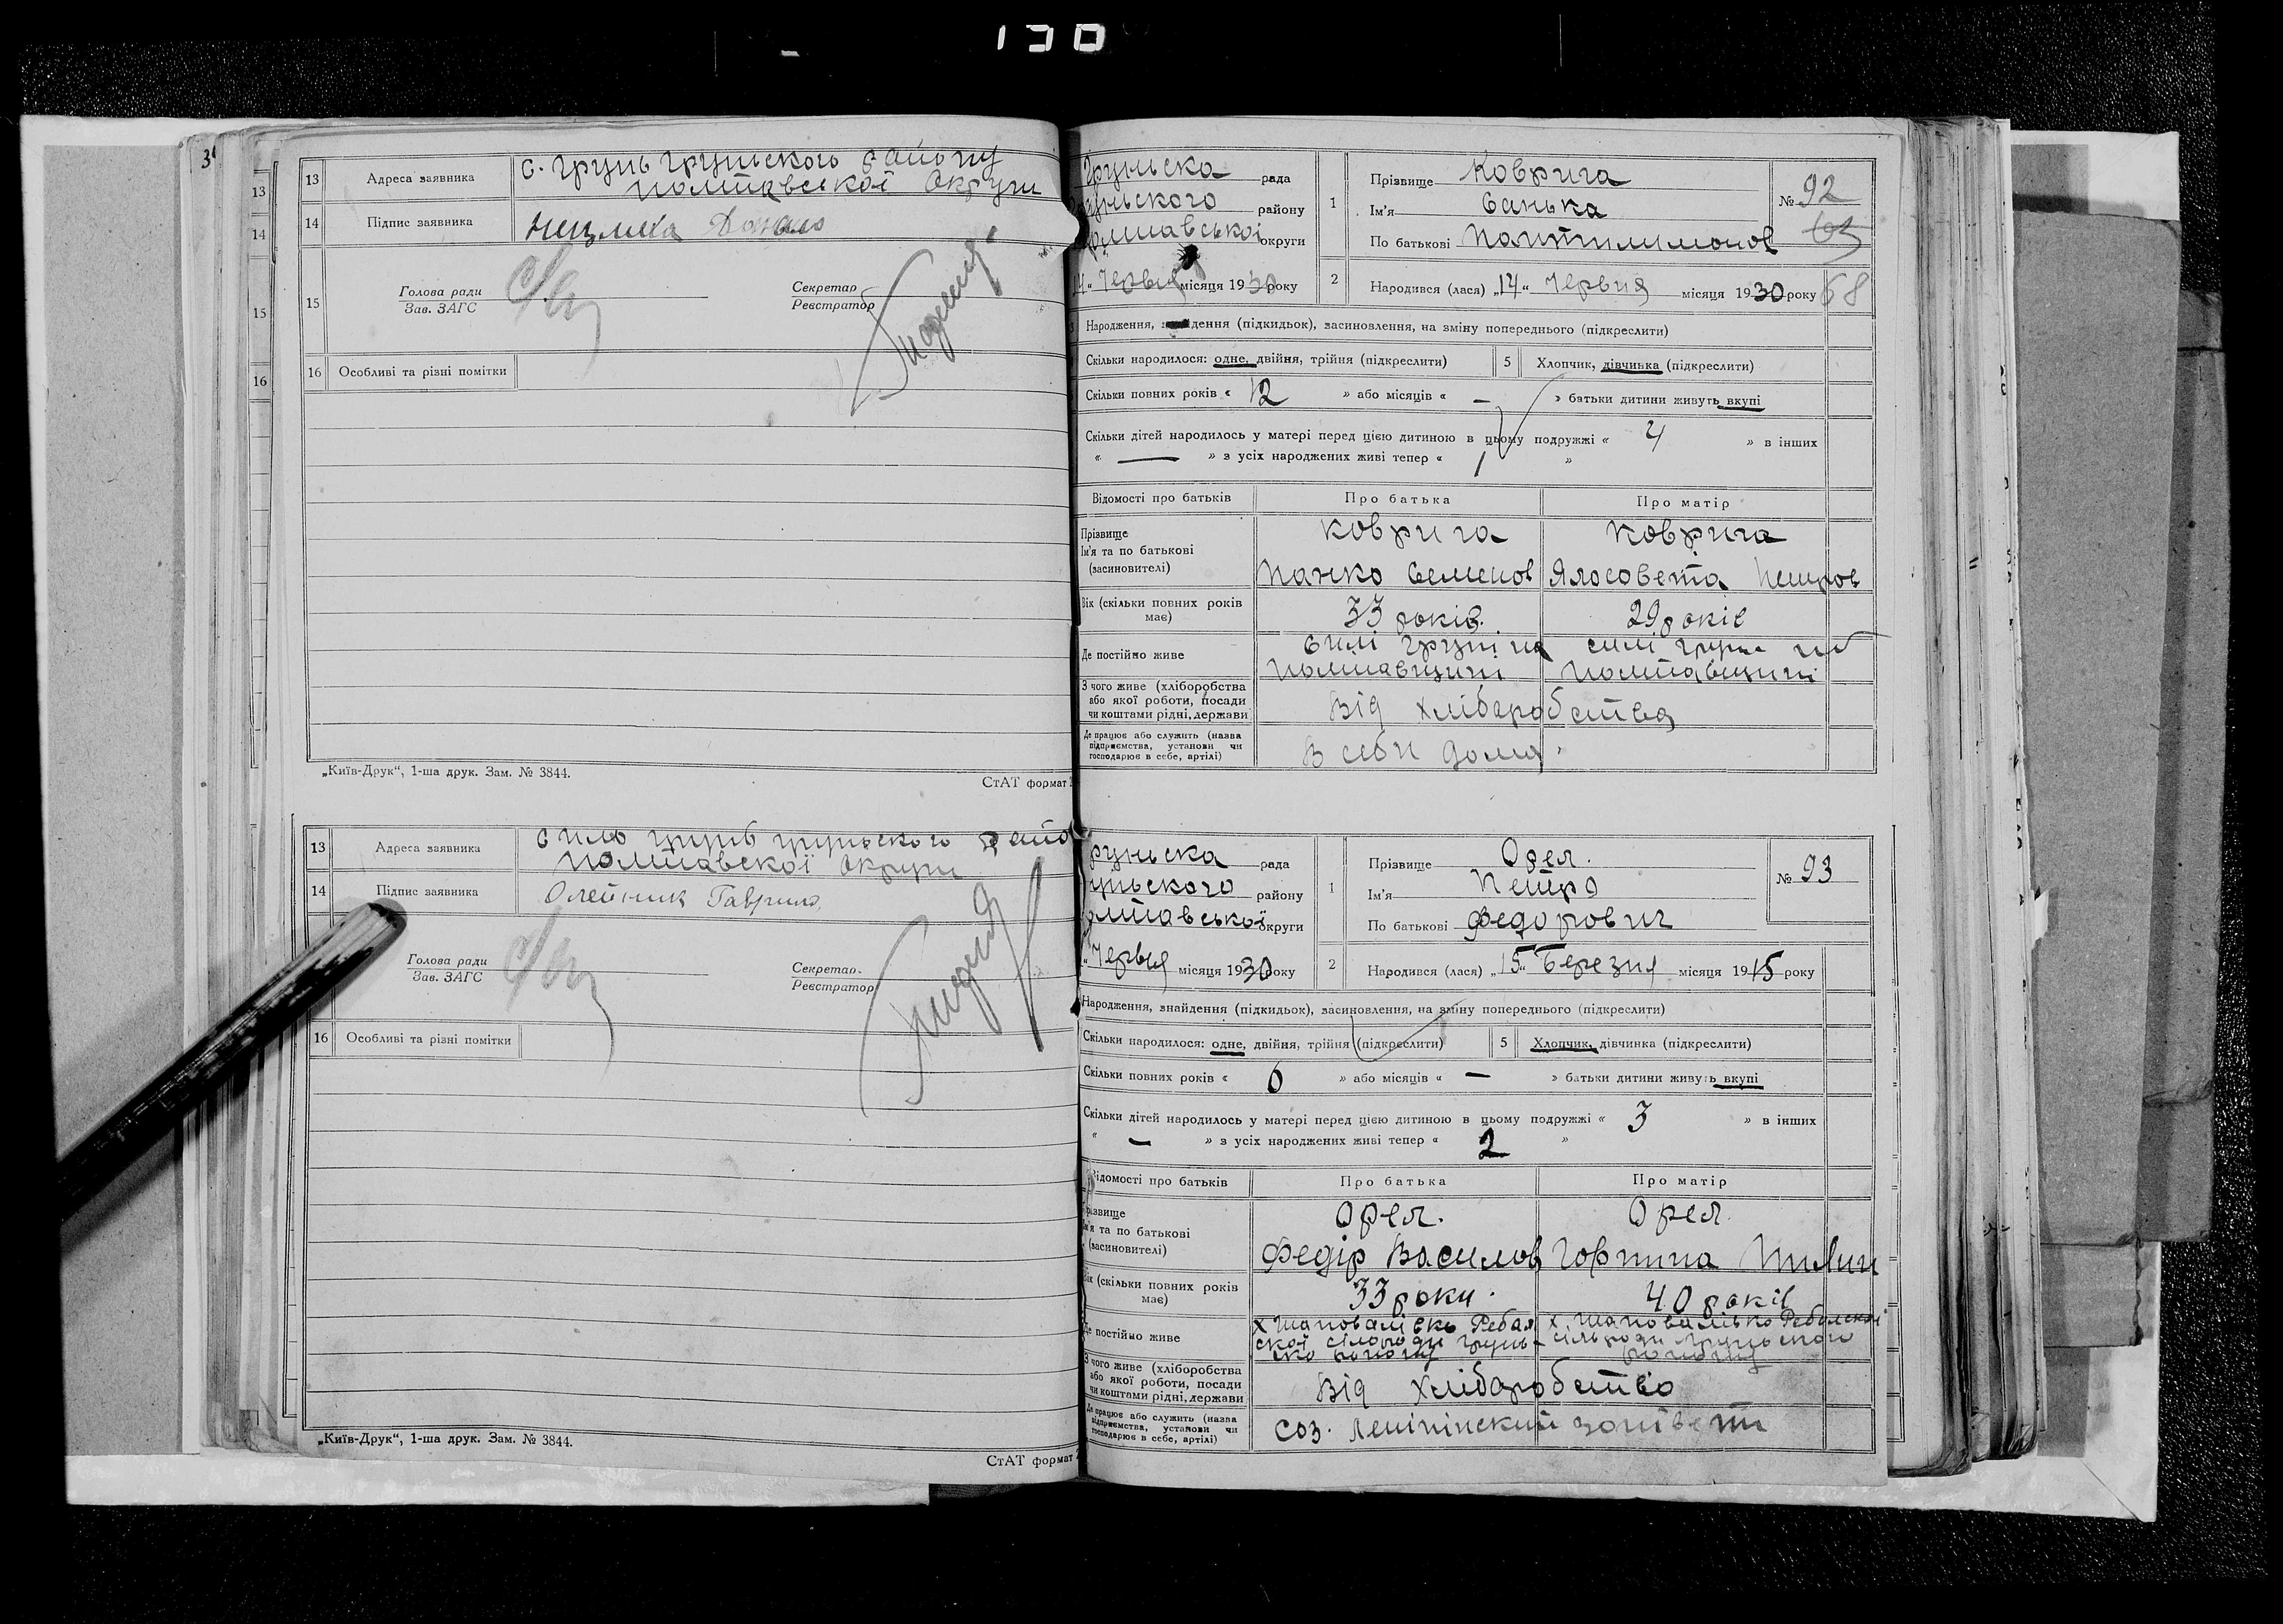 130
3
13
14
15
16
13 Адреса заявника с. Грунь Груньского району
Полтавської Округи
14 Підпис заявника
15 Голова ради
Зав. ЗАГС
Секретар
Реєстратор
16 Особливі та різні помітки
„Київ-Друк“, 1-ша друк. Зам. № 3844.
СтАТ формат
13 Адреса заявника село Грунь Груньского райо
Полтавскої Округи
14 Підпис заявника Олейник Гаврило
Голова ради
Зав. ЗАГС
Секретар
Реєстратор
16 Особливі та різні помітки
„Київ-Друк“, 1-ша друк. Зам. № 3844.
СтАТ формат
Груньска рада
Груньского району
Полтавської округи
14“ Червня місяця 1930 року
1 Прізвище Коврига
Ім'я Санька
По батькові Пантилимонов
№ 92
63
2 Народився (лася) „14“ Червня місяця 1930 року 68
Народження, знайдення (підкидьок), засиновлення, на зміну попереднього (підкреслити)
Скільки народилося: одне, двійня, трійня (підкреслити) 5 Хлопчик, дівчинка (підкреслити)
Скільки повних років « 12 » або місяців « — » батьки дитини живуть вкупі
Скільки дітей народилось у матері перед цією дитиною в цьому подружжі « 4 » в інших
« — » з усіх народжених живі тепер « 1 »
Відомості про батьків Про батька Про матір
Прізвище Коврига Коврига
Ім'я та по батькові
(засиновителі) Панко Семенов Ялосовета Петров
Вік (скільки повних років
має) 33 років. 29 років
Де постійно живе селі Груні на селі Груне на
Полтавщині Полтавщині
З чого живе (хліборобства
або якої роботи, посади
чи коштами рідні, держави Від хлібаробства
Де працює або служить (назва
підприємства, установи чи
господарює в себе, артілі) В себи дома.
Груньска рада
Груньского району
Полтавської округи
“ Червня місяця 1930 року
1 Прізвище Орел.
Ім'я Петро
По батькові Федорович
№ 93
2 Народився (лася) „15“ Березня місяця 1915 року
Народження, знайдення (підкидьок), засиновлення, на зміну попереднього (підкреслити)
Скільки народилося: одне, двійня, трійня (підкреслити) 5 Хлопчик, дівчинка (підкреслити)
Скільки повних років « 6 » або місяців « — » батьки дитини живуть вкупі
Скільки дітей народилось у матері перед цією дитиною в цьому подружжі « 3 » в інших
« — » з усіх народжених живі тепер « 2 »
Відомості про батьків Про батька Про матір
Прізвище Орел. Орел.
Ім'я та по батькові
(засиновителі) Федір Василов Горпина
Вік (скільки повних років
має) 33 роки. 40 років
Де постійно живе
З чого живе (хліборобства
або якої роботи, посади
чи коштами рідні, держави Від хлібаробство
Де працює або служить (назва
підприємства, установи чи
господарює в себе, артілі) Соз. Ленінінский